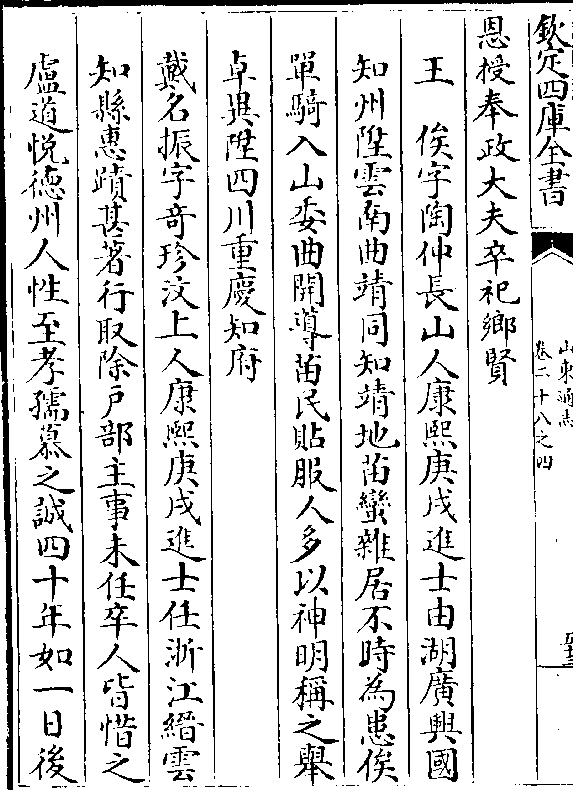 欽定四庫全書
山東通志
卷二十八之四
恩授奉政大夫卒祀鄉賢
王 俟字陶仲長山人康熙庚戌進士由湖廣興國
知州陞雲南曲靖同知靖地苗蠻雜居不時為患俟
單騎入山委曲開導苗民貼服人多以神明稱之舉
卓異陞四川重慶知府
戴名振字竒珍汶上人康熙庚戌進士任浙江縉雲
知縣惠蹟甚著行取除户部主事未任卒人皆惜之
盧道悦德州人性至孝孺慕之誠四十年如一日後